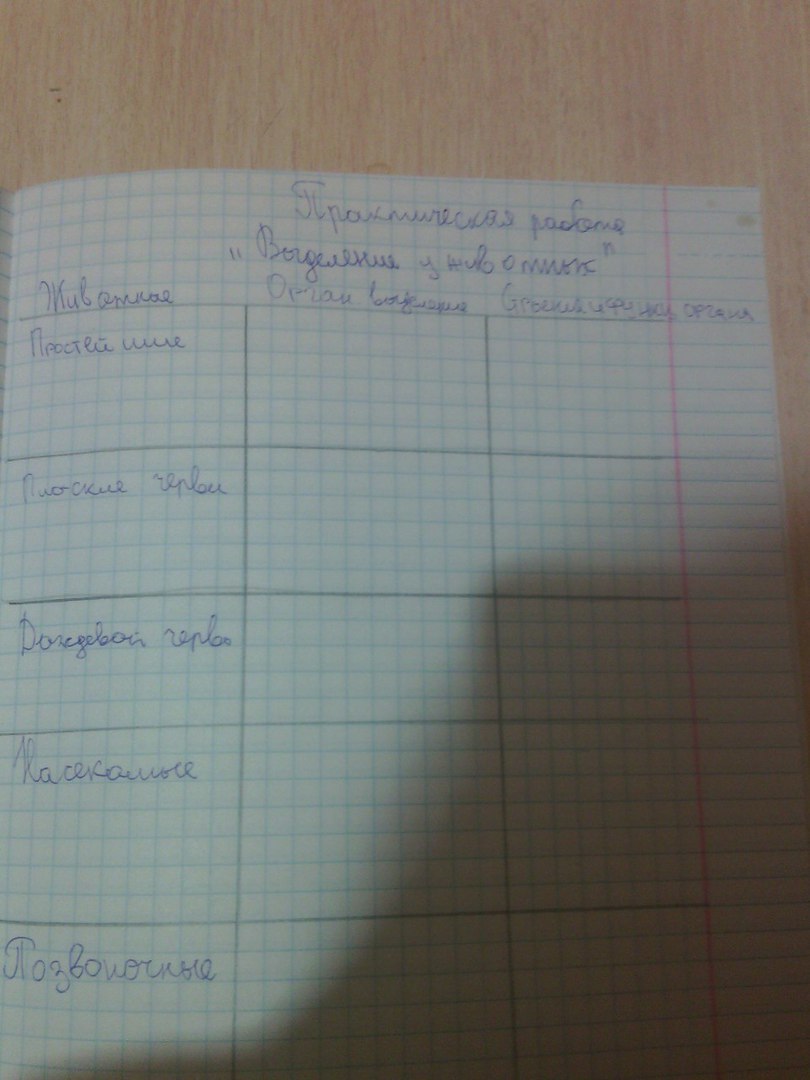 Практическая работа
"Выделения у животных"
Животное Орган выделения органа
Простейшие
Плоские черви
Дождевой червь
Насекомые
Позвоночные